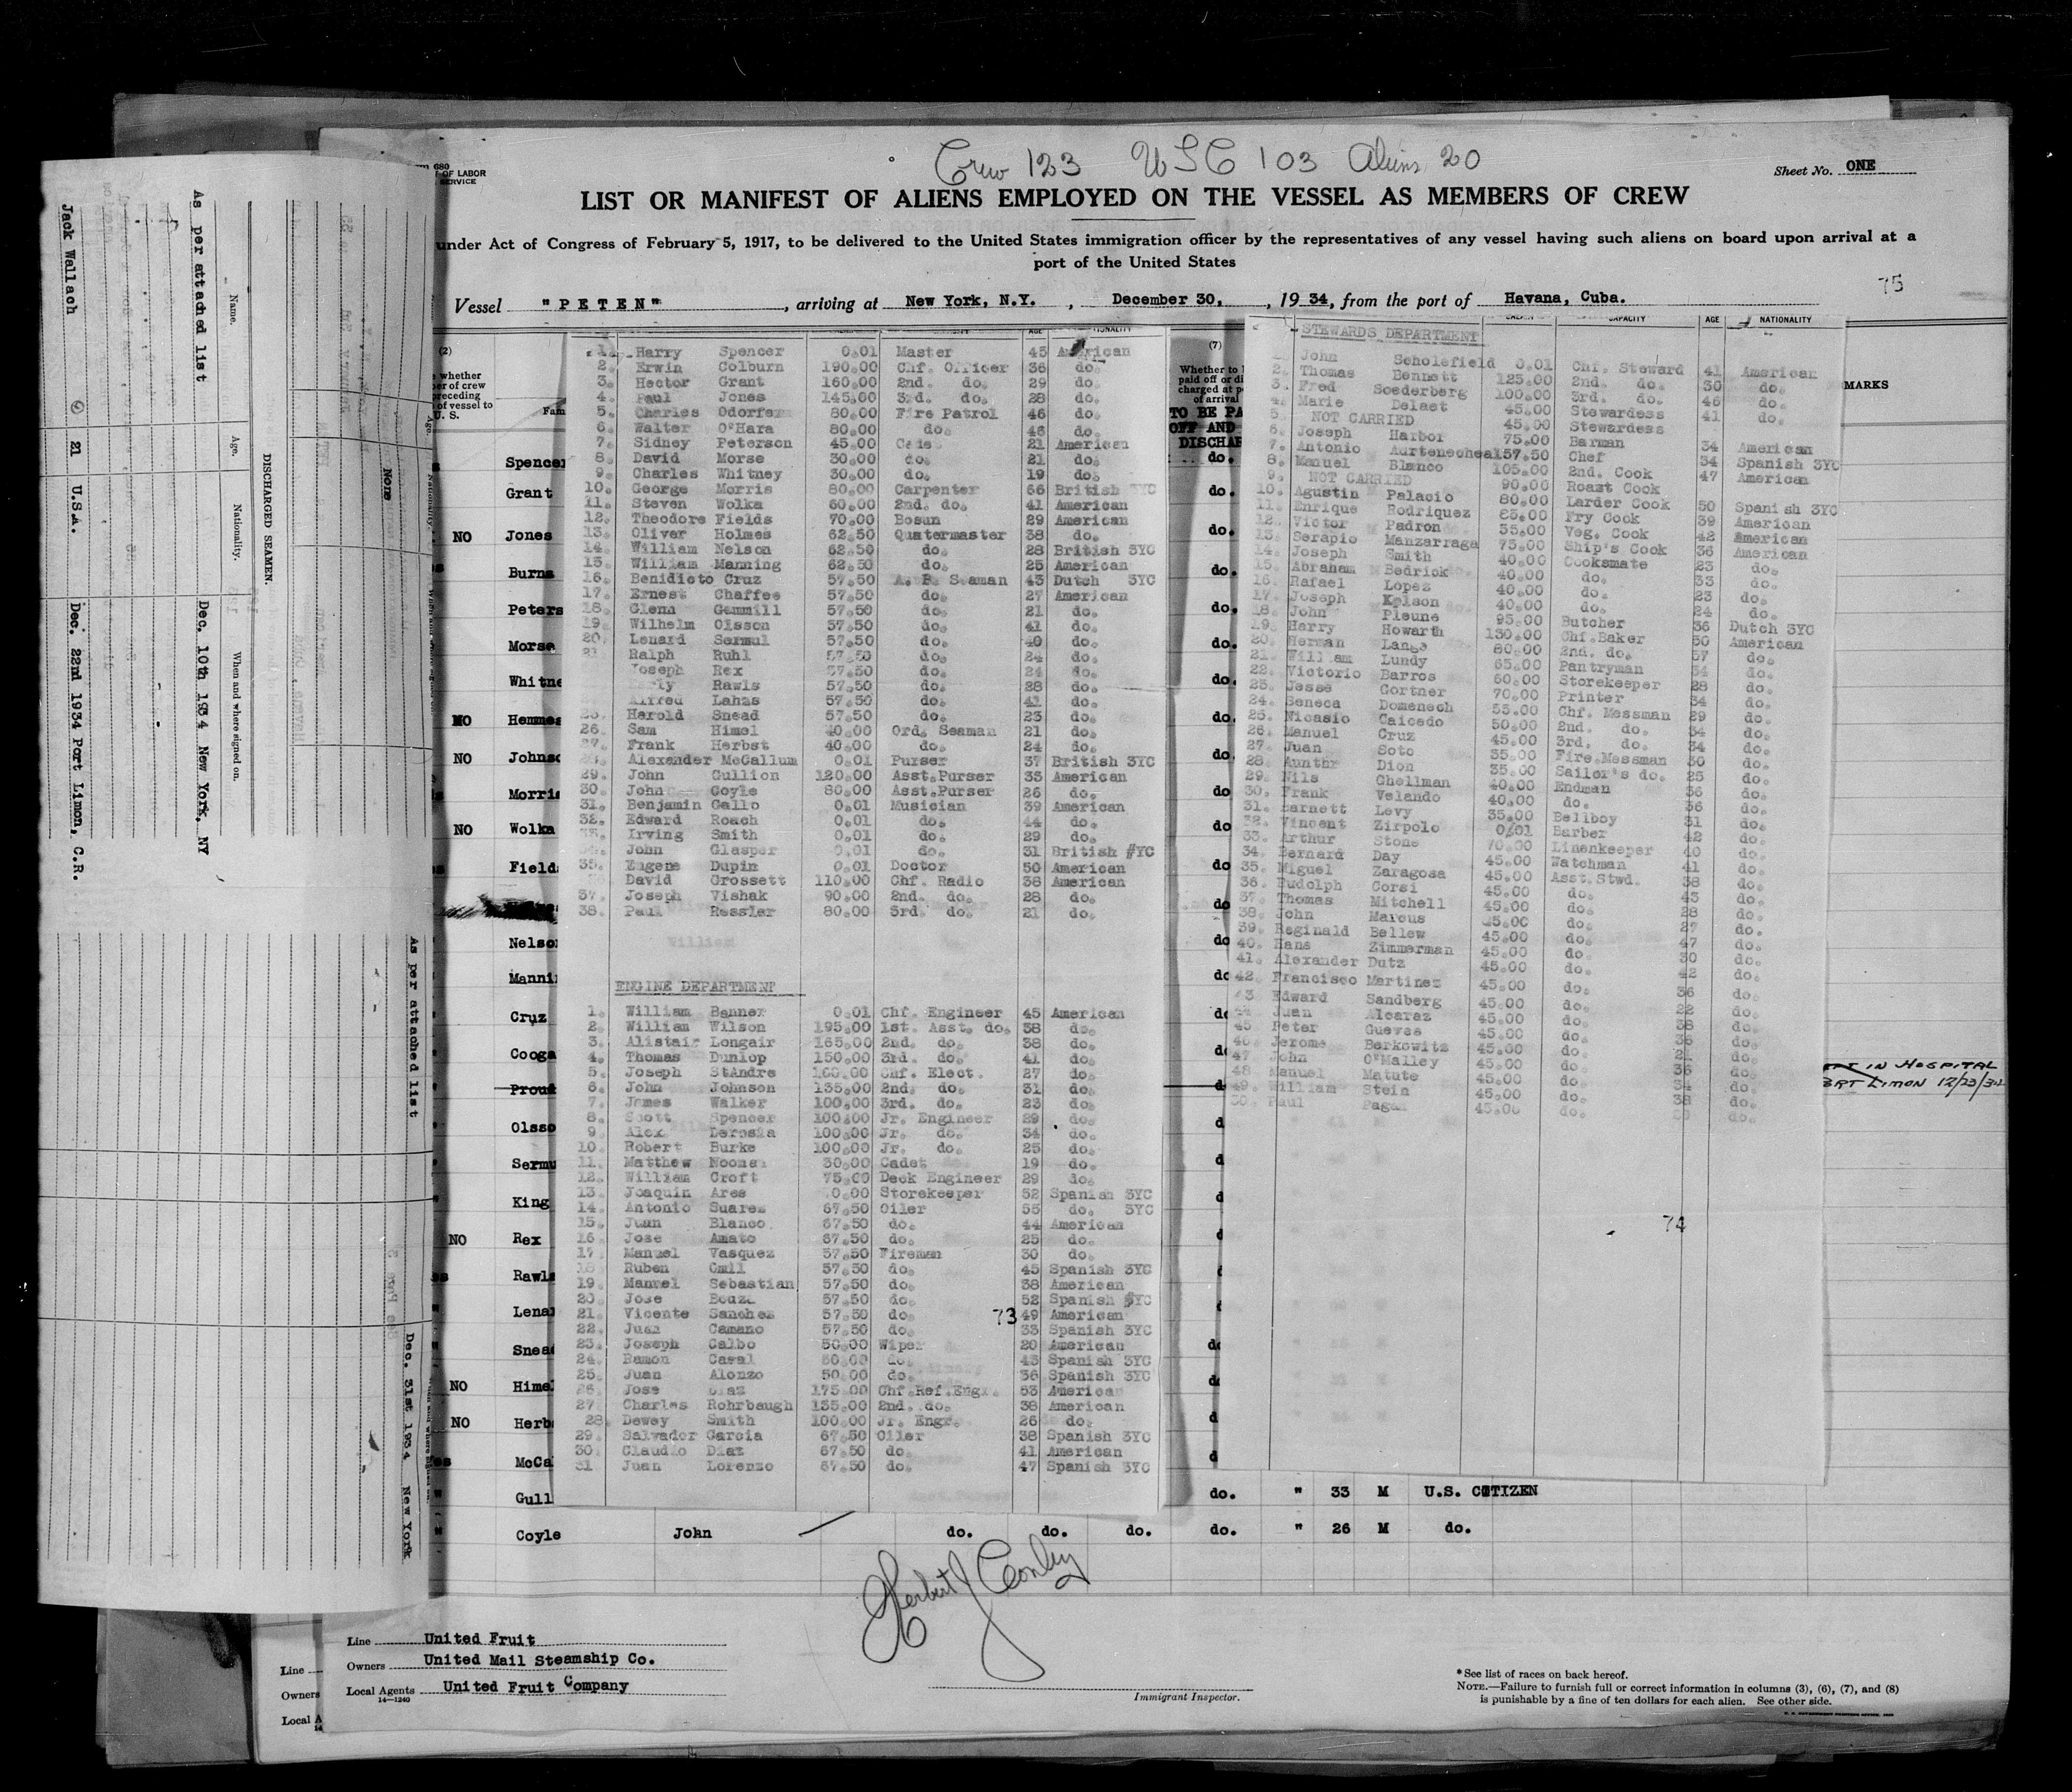 Crew 123 USC 103 Aliens 20
680
OF LABOR
SERVICE
Sheet No. ONE
LIST OR MANIFEST OF ALIENS EMPLOYED ON THE VESSEL AS MEMBERS OF CREW
under Act of Congress of February 5, 1917, to be delivered to the United States immigration officer by the representatives of any vessel having such aliens on board upon arrival at a
port of the United States
75
Vessel "PETEN", arriving at New York, N.Y., December 30, 1934, from the port of Havana, Cuba.
As per attached list
Jack Wallach 21 U.S.A. Dec. 22nd 1934 Port Limon, C.R.
Dec. 10th 1934 New York, NY
Name. Age. Nationality. When and where signed on.
DISCHARGED SEAMEN.
None
As per attached list
Dec. 31st 1934 New York
(2)
whether
er of crew
preceding
of vessel to
U. S.
Fam
Spencer
Grant
NO Jones
Burns
Peters
Morse
Whitne
NO Hemmes
NO Johnso
Morris
NO Wolka
Field
Nelson
Mannin
Cruz
Cooga
Proud
Olsso
Sermu
King
NO Rex
Rawls
Lena
Snead
NO Himel
NO Herb
McCa
Gull
1. Harry Spencer 0.01 Master 45 American
2. Erwin Colburn 190.00 Chf. Officer 36 do.
3. Hector Grant 160.00 2nd. do. 29 do.
4. Paul Jones 145.00 3rd. do. 28 do.
5. Charles Odorfer 80.00 Fire Patrol 46 do.
6. Walter O'Hara 80.00 do. 46 do.
7. Sidney Peterson 45.00 21 American
8. David Morse 30.00 do. 21 do.
9. Charles Whitney 30.00 do. 19 do.
10. George Morris 80.00 Carpenter 66 British 3YC
11. Steven Wolka 60.00 2nd. do. 41 American
12. Theodore Fields 70.00 Bosun 29 American
13. Oliver Holmes 62.50 Quatermaster 38 do.
14. William Nelson 62.50 do. 28 British 3YC
15. William Manning 62.50 do. 25 American
16. Benidicto Cruz 57.50 A. B. Seaman 43 Dutch 3YC
17. Ernest Chaffee 57.50 do. 27 American
18. Glenn Gammill 57.50 do. 21 do.
19. Wilhelm Olsson 57.50 do. 41 do.
20. Lenard Sermul 57.50 do. 40 do.
21. Ralph Ruhl 57.50 do. 24 do.
Joseph Rex 57.50 do. 24 do.
Rawls 57.50 do. 28 do.
Alfred Lahas 57.50 do. 41 do.
25. Harold Snead 57.50 do. 23 do.
26. Sam Himel 40.00 Ord. Seaman 21 do.
27. Frank Herbst 40.00 do. 24 do.
Alexander McCallum 0.01 Purser 37 British 3YC
29. John Gullion 120.00 Asst.Purser 33 American
30. John Coyle 80.00 Asst.Purser 26 do.
31. Benjamin Gallo 0.01 Musician 39 American
32. Edward Roach 0.01 do. 44 do.
33. Irving Smith 0.01 do. 29 do.
John Glasper 0.01 do. 31 British #YC
35. Eugene Dupin 0.01 Doctor 50 American
David Grossett 110.00 Chf. Radio 38 American
37. Joseph Vishak 90.00 2nd. do. 28 do.
38. Paul Ressler 80.00 3rd. do. 21 do.
ENGINE DEPARTMENT
1. William Banner 0.01 Chf. Engineer 45 American
2. William Wilson 195.00 1st. Asst. do. 38 do.
3. Alistair Longair 165.00 2nd. do. 38 do.
4. Thomas Dunlop 150.00 3rd. do. 41 do.
5. Joseph StAndre 160.00 Chf. Elect. 27 do.
6. John Johnson 135.00 2nd. do. 31 do.
7. James Walker 100.00 3rd. do. 23 do.
8. Scott Spencer 100.00 Jr. Engineer 29 do.
9. Alex Derosia 100.00 Jr. do. 34 do.
10. Robert Burke 100.00 Jr. do. 25 do.
11. Matthew Noonan 30.00 Cadet 19 do.
12. William Croft 75.00 Deck Engineer 29 do.
13. Joaquin Ares Storekeeper 52 Spanish 3YC
14. Antonio Suarez 67.50 Oiler 55 do. 3YC
15. Juan Blanco 67.50 do. 44 American
16. Jose Amato 67.50 do. 25 do.
17. Manuel Vasquez 57.50 Fireman 30 do.
18. Ruben 57.50 do. 45 Spanish 3YC
19. Manuel Sebastian 57.50 do. 38 American
20. Jose Bouza 57.50 do. 52 Spanish 3YC
21. Vicente Sanchez 57.50 do. 49 American
73
22. Juan Camano 57.50 do. 33 Spanish 3YC
23. Joseph Calbo 50.00 Wiper 20 American
24. Ramon Casal 50.00 do. 43 Spanish 3YC
25. Juan Alonzo 50.00 do. 36 Spanish 3YC
26. Jose Diaz 175.00 Chf.Ref.Engr. 53 American
27. Charles Rohrbaugh 135.00 2nd. do. 38 American
28. Dewey Smith 100.00 Jr. Engr. 26 do.
29. Salvador Garcia 67.50 Oiler 38 Spanish 3YC
30. Claudio Diaz 67.50 do. 41 American
31 Juan Lorenzo 67.50 do. 47 Spanish 3YC
(7)
Whether to
paid off or di
charged at p
of arrival
TO BE PA
OFF AND
DISCHAR
STEWARDS DEPARTMENT
CAPACITY AGE NATIONALITY
MARKS
John Scholefield 0.01 Chf. Steward 41 American
2. Thomas Bennett 125.00 2nd. do. 30 do.
3. Fred Soederberg 100.00 3rd. do. 46 do.
4. Marie Delaet 45.00 Stewardess 41 do.
5. NOT CARRIED 45.00 Stewardess
6. Joseph Harbor 75.00 Barman 34 American
7. Antonio Aurteneoheal 157.50 Chef 34 Spanish 3YC
8. Manuel Blanco 105.00 2nd. Cook 47 American
9. NOT CARRIED 90.00 Roast Cook
10. Agustin Palacio 80.00 Larder Cook 50 Spanish 3YC
11. Enrique Rodriquez Fry Cook 39 American
12. Victor Padron 55.00 Veg. Cook 42 American
13. Serapio Manzarraga 75.00 Ship's Cook 36 American
14. Joseph Smith 40.00 Cooksmate 23 do.
15. Abraham Bedrick 40.00 do. 33 do.
16. Rafael Lopez 40.00 do. 23 do.
17. Joseph Kelson 40.00 do. 24 do.
18. John Pleune 95.00 Butcher 36 Dutch 3YC
19. Harry Howarth 130.00 Chf.Baker 50 American
20. Herman Lange 80.00 2nd. do. 57 do.
21. William Lundy 65.00 Pantryman 34 do.
22. Victorio Barros 60.00 Storekeeper 28 do.
23. Jesse Cortner 70.00 Printer 34 do.
24. Seneca Domenech 55.00 Chf. Messman 29 do.
25. Nicasio Caicedo 50.00 2nd. do. 34 do.
26. Manuel Cruz 45.00 3rd. do. 34 do.
27. Juan Soto 35.00 Fire.Messman 30 do.
28. Aunthr Dion 35.00 Sailor's do. 25 do.
29. Nils Ghellman 40.00 Endman 36 do.
30. Frank Velando 40.00 do. 36 do.
31. Barnett Levy 35.00 Bellboy 31 do.
32. Vincent Zirpolo 0.01 Barber 42 do.
33. Arthur Stone 70.00 Linenkeeper 40 do.
34. Bernard Day 45.00 Watchman 41 do.
35. Miguel Zaragosa 45.00 Asst.Stwd. 38 do.
36. Rudolph Corsi 45.00 do. 43 do.
37. Thomas Mitchell 45.00 do. 28 do.
38. John Marcus 45.00 do. 27 do.
39. Reginald Bellew 45.00 do. 47 do.
40. Hans Zimmerman 45.00 do. 30 do.
41. Alexander Dutz 45.00 do. 42 do.
42. Francisco Martinez 45.00 do. 36 do.
43 Edward Sandberg 45.00 do. 22 do.
44 Juan Alcaraz 45.00 do. 38 do.
45 Peter Guevas 45.00 do. 36 do.
46 Jerome Berkowitz 45.00 do. 21 do.
47 John O'Malley 45.00 do. 36 do.
48 Manuel Matute 45.00 do. 34 do.
49. William Stein 45.00 do. 38 do.
50. Paul Pagan 45.00 do. do.
74
IN HOSPITAL
LIMON 12/23/34
do. " 33 M U.S. CITIZEN
Coyle John do. do. do. do. " 26 M do.
Herbert J Conley
Immigrant Inspector.
Line United Fruit
Owners United Mail Steamship Co.
Local Agents United Fruit Company
14—1240
Line
Owners
Local A
14
*See list of races on back hereof.
NOTE.—Failure to furnish full or correct information in columns (3), (6), (7), and (8)
is punishable by a fine of ten dollars for each alien. See other side.